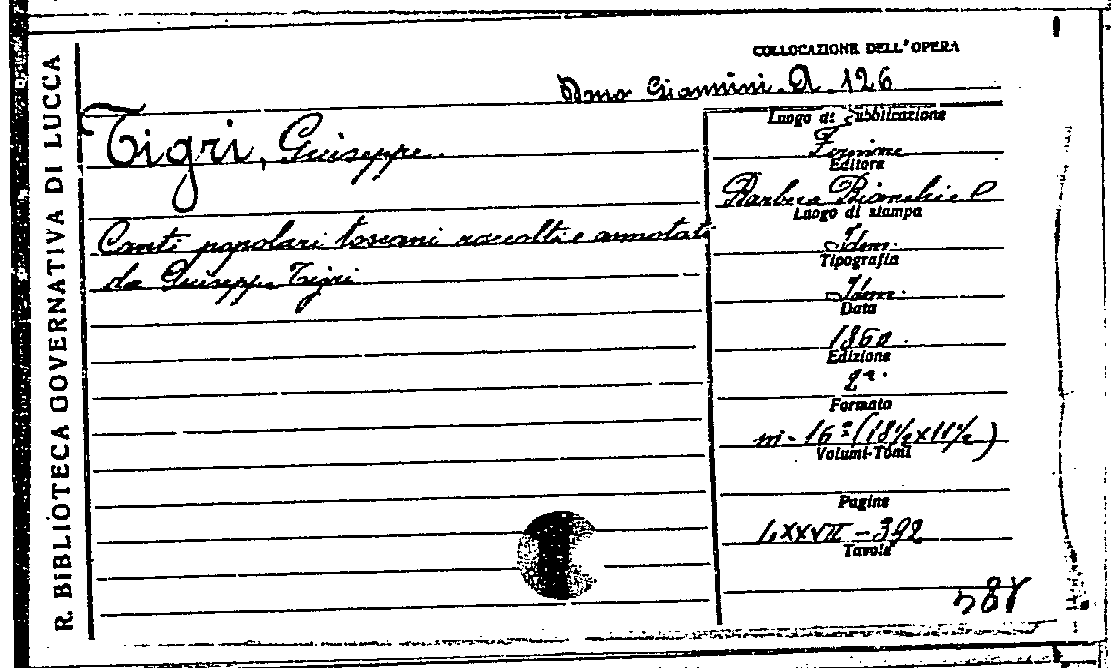 R. BIBLIOTECA GOVERNATIVA DI LUCCA
COLLOCAZIONE DELL'OPERA
Giannini. A. 126
Tigri, Giuseppe
Canti popolari toscani raccolti e annotati
da Giuseppe Tigri
Luogo di Pubblicazione
Firenze
Editore
Barbera Bianchi e C
Luogo di stampa
Idem.
Tipografia
Idem.
Data
1860.
Edizione
2ª.
Formato
in-16º (18½x11½)
Volumi-Tomi
Pagine
LXXVII - 392
Tavole